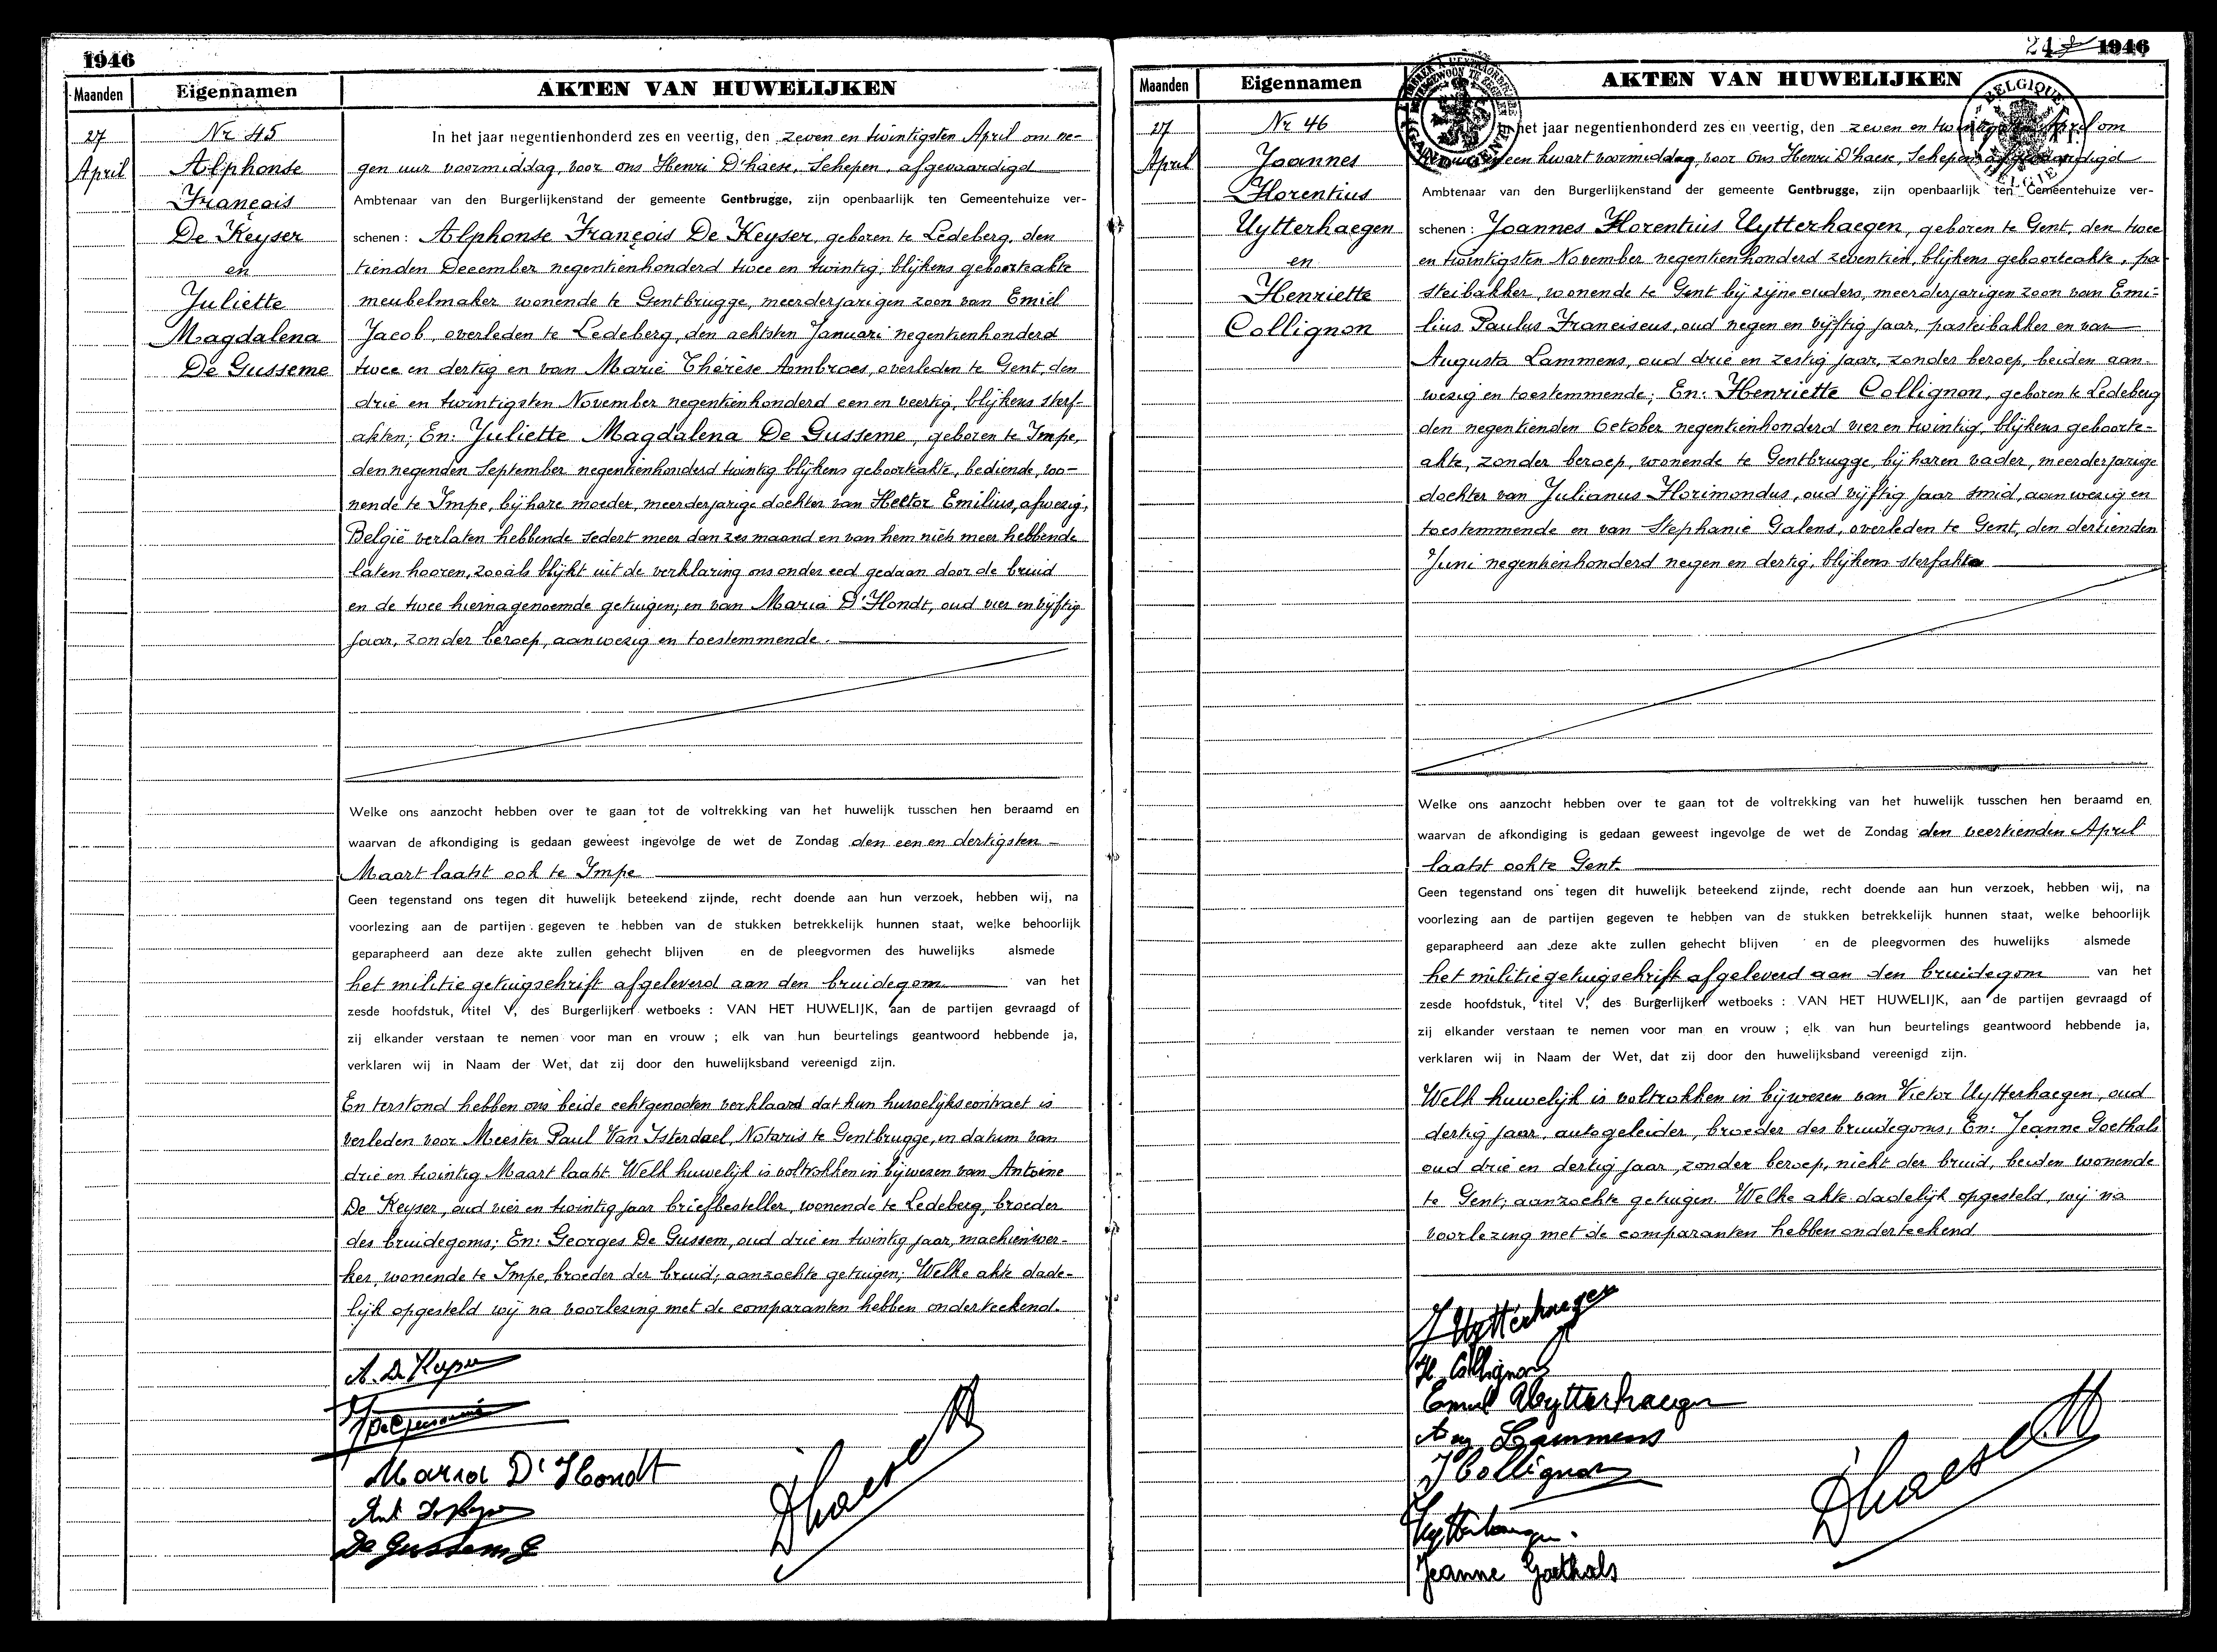 1946
Maanden
Eigennamen
AKTEN VAN HUWELIJKEN
27
April
Nr 45
Alphonse
François
De Keyser
en
Juliette
Magdalena
De Gusseme
In het jaar negentienhonderd zes en veertig, den zeven en twintigsten April om ne-
gen uur voormiddag voor ons Henri D'haese, Schepen, afgevaardigd
Ambtenaar van den Burgerlijkenstand der gemeente Gentbrugge, zijn openbaarlijk ten Gemeentehuize ver-
schenen : Alphonse François De Keyser, geboren te Ledeberg, den
tienden December negentienhonderd twee en twintig, blijkens geboorteakte
meubelmaker wonende te Gentbrugge, meerderjarigen zoon van Emiel
Jacob, overleden te Ledeberg, den achtsten Januari negentienhonderd
twee en dertig en van Marie Thérèse Ambraes, overleden te Gent, den
drie en twintigsten November negentienhonderd een en veertig, blijkens sterf-
akten; En: Juliette Magdalena De Gusseme, geboren te Impe,
den negenden September negentienhonderd twintig blijkens geboorteakte, bediende, wo-
nende te Impe, bij hare moeder, meerderjarige dochter van Hector Emilius, afwezig,
België verlaten hebbende sedert meer dan zes maand en van hem niets meer hebbende
laten hooren, zooals blijkt uit de verklaring ons onder eed gedaan door de bruid
en de twee hiernagenoemde getuigen; en van Maria D'Hondt, oud vier en vijftig
jaar, zonder beroep, aanwezig en toestemmende.
Welke ons aanzocht hebben over te gaan tot de voltrekking van het huwelijk tusschen hen beraamd en
waarvan de afkondiging is gedaan geweest ingevolge de wet de Zondag den een en dertigsten
Maart laatst ook te Impe
Geen tegenstand ons tegen dit huwelijk beteekend zijnde, recht doende aan hun verzoek, hebben wij, na
voorlezing aan de partijen gegeven te hebben van de stukken betrekkelijk hunnen staat, welke behoorlijk
geparapheerd aan deze akte zullen gehecht blijven en de pleegvormen des huwelijks alsmede
het militie getuigschrift afgeleverd aan den bruidegom van het
zesde hoofdstuk, titel V, des Burgerlijken wetboeks : VAN HET HUWELIJK, aan de partijen gevraagd of
zij elkander verstaan te nemen voor man en vrouw ; elk van hun beurtelings geantwoord hebbende ja,
verklaren wij in Naam der Wet, dat zij door den huwelijksband vereenigd zijn.
En terstond hebben ons beide echtgenooten verklaard dat hun huwelijkscontract is
verleden voor Meester Paul Van Isterdael, Notaris te Gentbrugge, in datum van
drie en twintig Maart laatst. Welk huwelijk is voltrokken in bijwezen van Antoine
De Keyser, oud vier en twintig jaar briefbesteller, wonende te Ledeberg, broeder
des bruidegoms; En: Georges De Gussem, oud drie en twintig jaar, machienwer-
ker, wonende te Impe, broeder der bruid; aanzochte getuigen; Welke akte dade-
lijk opgesteld wij na voorlezing met de comparanten hebben onderteekend.
A. De Keyser
J De Gusseme
Maria D'Hondt
Ant De Keyser
De Gussem G
D'haese H
24 1946
Maanden
Eigennamen
AKTEN VAN HUWELIJKEN
BELGIQUE
BELGIE
GAND GENT
27
April
Nr 46
Joannes
Florentius
Uytterhaegen
en
Henriette
Collignon
In het jaar negentienhonderd zes en veertig, den zeven en twintigsten April om
een kwart voormiddag, voor Ons Henri D'haese, Schepen, afgevaardigd
Ambtenaar van den Burgerlijkenstand der gemeente Gentbrugge, zijn openbaarlijk ten Gemeentehuize ver-
schenen : Joannes Florentius Uytterhaegen, geboren te Gent, den twee
en twintigsten November negentienhonderd zeventien, blijkens geboorteakte, pa-
steibakker, wonende te Gent bij zijne ouders, meerderjarigen zoon van Emi-
lius Paulus Franciscus, oud negen en vijftig jaar, pasteibakker en van
Augusta Lammens, oud drie en zestig jaar, zonder beroep, beiden aan-
wezig en toestemmende; En: Henriette Collignon, geboren te Ledeberg
den negentienden October negentienhonderd vier en twintig, blijkens geboorte-
akte, zonder beroep, wonende te Gentbrugge, bij haren vader, meerderjarige
dochter van Julianus Florimondus, oud vijftig jaar smid, aanwezig en
toestemmende en van Stephanie Galens, overleden te Gent, den dertienden
Juni negentienhonderd negen en dertig, blijkens sterfakte
Welke ons aanzocht hebben over te gaan tot de voltrekking van het huwelijk tusschen hen beraamd en
waarvan de afkondiging is gedaan geweest ingevolge de wet de Zondag den veertienden April
laatst ook te Gent.
Geen tegenstand ons tegen dit huwelijk beteekend zijnde, recht doende aan hun verzoek, hebben wij, na
voorlezing aan de partijen gegeven te hebben van de stukken betrekkelijk hunnen staat, welke behoorlijk
geparapheerd aan deze akte zullen gehecht blijven en de pleegvormen des huwelijks alsmede
het militie getuigschrift afgeleverd aan den bruidegom van het
zesde hoofdstuk, titel V, des Burgerlijken wetboeks : VAN HET HUWELIJK, aan de partijen gevraagd of
zij elkander verstaan te nemen voor man en vrouw ; elk van hun beurtelings geantwoord hebbende ja,
verklaren wij in Naam der Wet, dat zij door den huwelijksband vereenigd zijn.
Welk huwelijk is voltrokken in bijwezen van Victor Uytterhaegen, oud
dertig jaar, autogeleider, broeder des bruidegoms; En: Jeanne Goethals
oud drie en dertig jaar, zonder beroep, nicht der bruid, beiden wonende
te Gent; aanzochte getuigen. Welke akte dadelijk opgesteld, wij na
voorlezing met de comparanten hebben onderteekend
J Uytterhaegen
H Collignon
Emiel Uytterhaegen
Aug Lammens
J Collignon
Uytterhaegen.
Jeanne Goethals
D'haese H